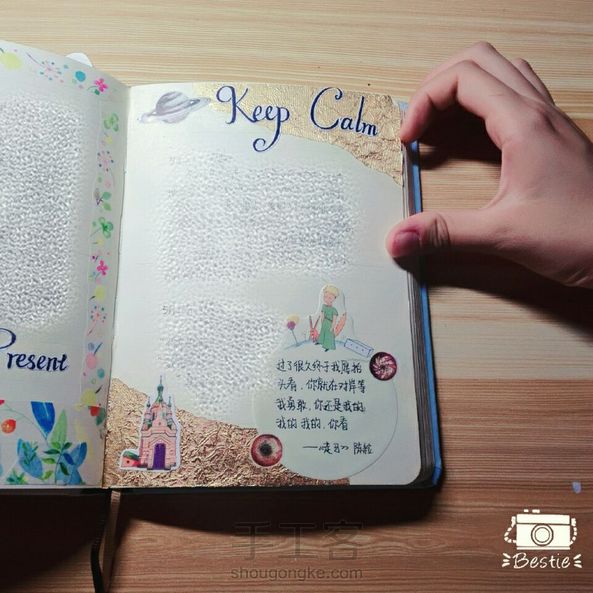 Keep Calm
Present
过了很久终于我愿抬
头看，你就在对岸等
我勇敢，你还是我的
我的 我的，你看
——《走马》 陈粒
手工客
shougongke.com
Bestie